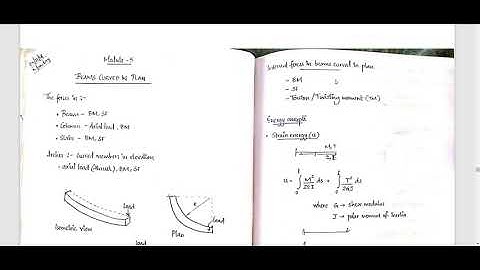 Module - 5
BEAMS CURVED IN PLAN
The forces in :-
• Beams - BM, SF
• Columns - Axial load, BM
• Slabs - BM, SF
Arches :- Curved members in elevation
- axial load (thrust), BM, SF
load
R
load
Isometric view
Plan
load
Internal forces in beams curved in plan
- BM
- SF
- Torsion / Twisting moment (TM)
Energy concepts
• Strain energy (U)
U = ∫ M²/2EI ds + ∫ T²/2GJ ds
where G → shear modulus
J → polar moment of Inertia